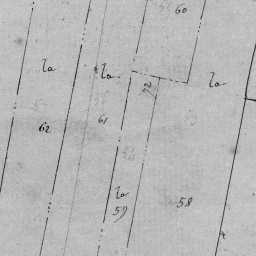 60
la
la
la
62
61
la
59
58